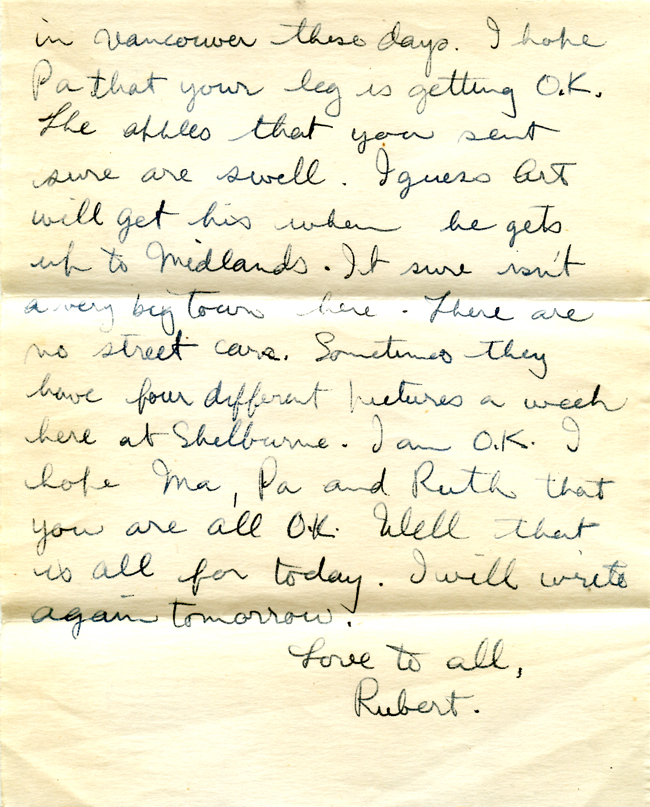 in Vancouver these days. I hope
Pa that your leg is getting O.K.
The apples that you sent
sure are swell. I guess Art
will get his when he gets
up to Midlands. It sure isn't
a very big town here. There are
no street cars. Sometimes they
have four different pictures a week
here at Shelburne. I am O.K. I
hope Ma, Pa and Ruth that
you are all O.K. Well that
is all for today. I will write
again tomorrow.
Love to all,
Rubert.